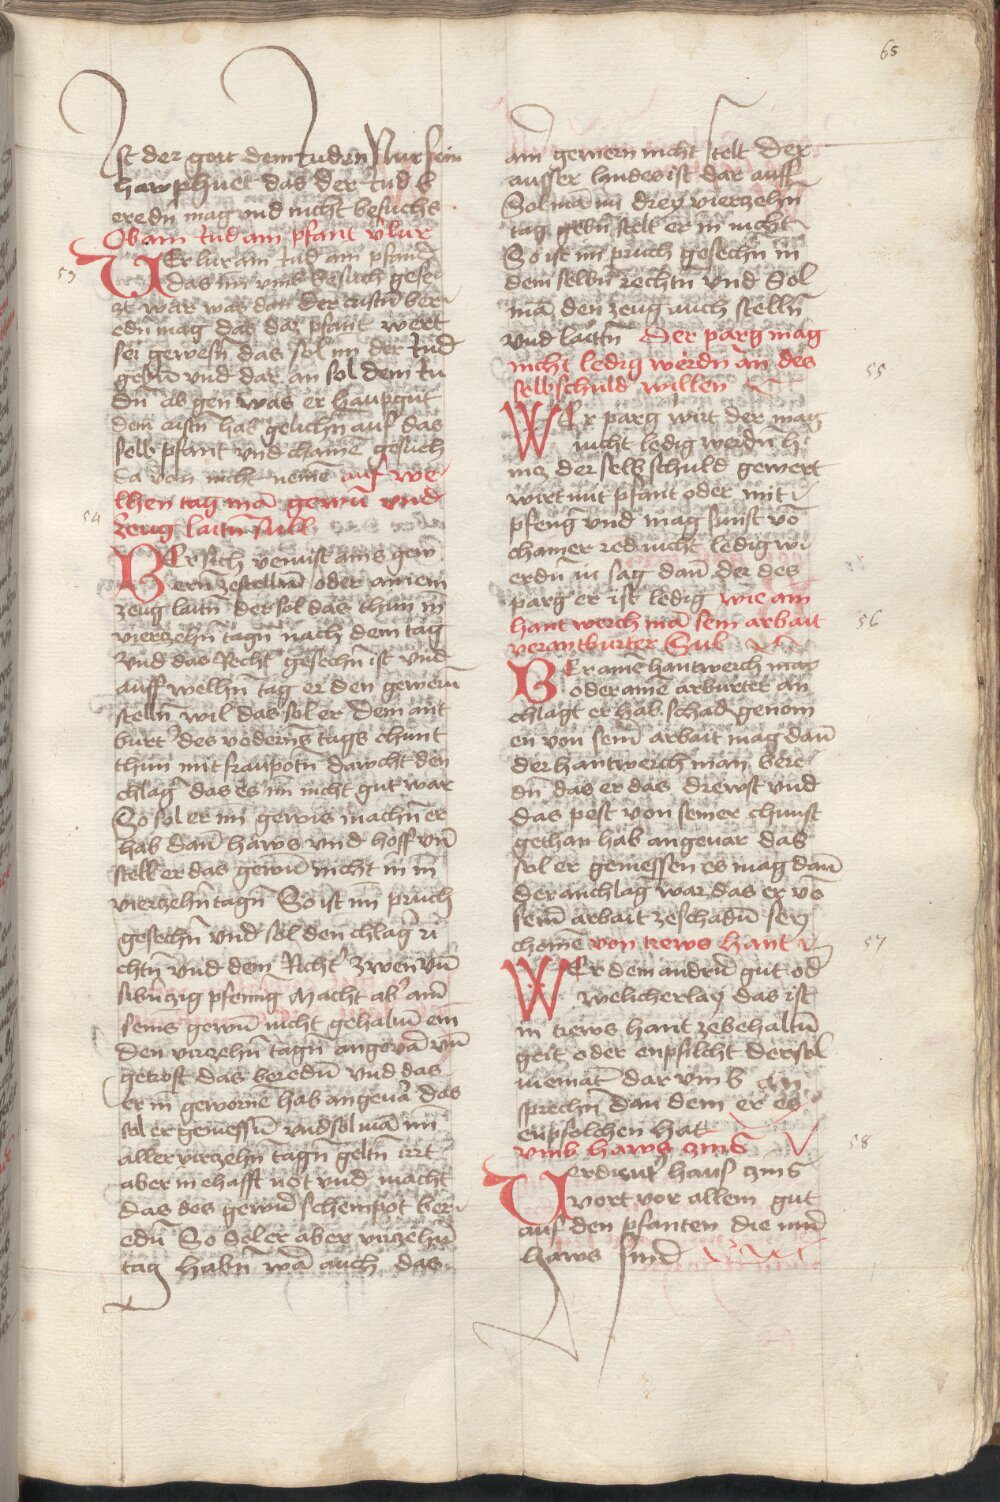 65
ist der geit dem Juden Nur sein
hawphuet das der Jud b
eredn̄ mag vnd nicht besuchs
Ob ain Jud ain pfant v̓lur
53
VErlur ain Jud ain pfant
das im vmb besuch gese
zt war was dan der cristn̄ ber
edn̄ mag das daz pfant wert
sei gewesn̄ das sol im der Jud
geltn̄ vnd dar an sol dem Ju
dn̄ ab gen was er haupgut
dem cristn̄ hab gelichn̄ auf das
selb pfant vnd chainē gesuch
da von nicht nemē auf we
lhen tag mā gewern̄ vnd
54
zeug laitn̄ sull
BEr sich vermist ains gew
ern̄ zestellnn̄ oder ainem
zeug laitn̄ der sol das thun in
vierzehn̄ tagn̄ nach dem tag
Vnd das Recht gesechn̄ ist vnd
auff welhn̄ tag er den gewern̄
stelln̄ wil das sol er dem ant
burt̓ des vodern̄s tags chunt
thun mit franpotn̄ dawcht den
chlag̓ das es im nicht gut war
So sol er im gewis machn̄ er
hab dan̄ haws vnd hoff vn̄
stell er das gewern̄ nicht in in
vierzehn̄ tagn̄ So ist im pruch
gesechn̄ vnd sol den chlag̓ ri
chtn̄ vnd dem Richt̓ zwen vn̄
sibn̄zig pfennig Macht ab̓ ain̄
seins gewern̄ nicht gehabn̄ ein
den virzehn̄ tagn̄ angevā vn̄
getrost das beredn̄ vnd das
er in geworuē hab angeuā̓ das
sol er geniessn̄ vnd sol mā im
aller virzehn̄ tagn̄ geltn̄ irrt
aber in ehafft not vnd macht
das des gewern̄ schempot ber
edn̄ So sol er aber virzehn̄
tag habn̄ wā auch das
ain gewern nicht stelt der
ausser landes ist dar auff
Sol mā im drey vierzehn̄
tag gebn̄ stelt er in nicht
So ist im pruch gesechn̄ in
dem selbn̄ rechtn̄ vnd Sol
mā den zeug auch stelln̄
vnd laittn̄ Der parg mag
nicht ledig werdn̄ an des
55
selbschuld willen
WEr parg wirt der mag
nicht ledig werdn̄ h
inez der selb schuld gewert
wirt mit pfant oder mit
pfeng̓ vnd mag sunst vō
chainer red nicht ledig wi
erdn̄ in sag dan̄ der des
parg er ist ledig wie ain
56
hant werch mā sein arbait
verantburter Sul
BEr ainē hantwerch man
oder ainē arbaiter an
chlagt er hab schad genom
en von seinē arbait mag dan̄
der hantwerch man bere
dn̄ das er das drewst vnd
das pest von seiner chunst
gethan hab angeuar das
sol er geniessen es mag dan̄
der anchlag̓ war das er vō
seinē arbait ze schadn̄ sey
57
chomē von trews hant
WEr dem andrn̄ gut od̓
welicherlay das ist
in trews hant ze behaltn̄
geit oder enpfilcht der sol
niemāt dar vmb an
sprechn̄ dan dem er es
enpfolchen hat
58
vmb haws zins
VErdient haus zins
vort vor allem gut
auf den pfanten die inn̄
haws sind